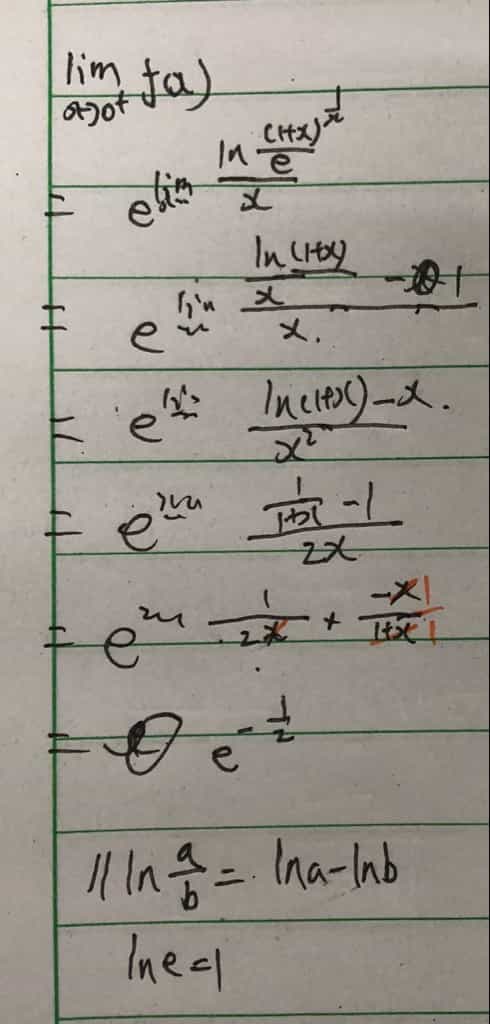 lim x→0⁺ f(x)
= e^lim (ln ((1+x)^(1/x) / e)) / x
= e^lim (ln(1+x)/x - 1) / x.
= e^lim (ln(1+x) - x) / x² .
= e^lim (1/(1+x) - 1) / 2x
= e^lim 1/2x × -x/(1+x) 1 1
= e^(-1/2)
// ln a/b = lna - lnb
lne = 1